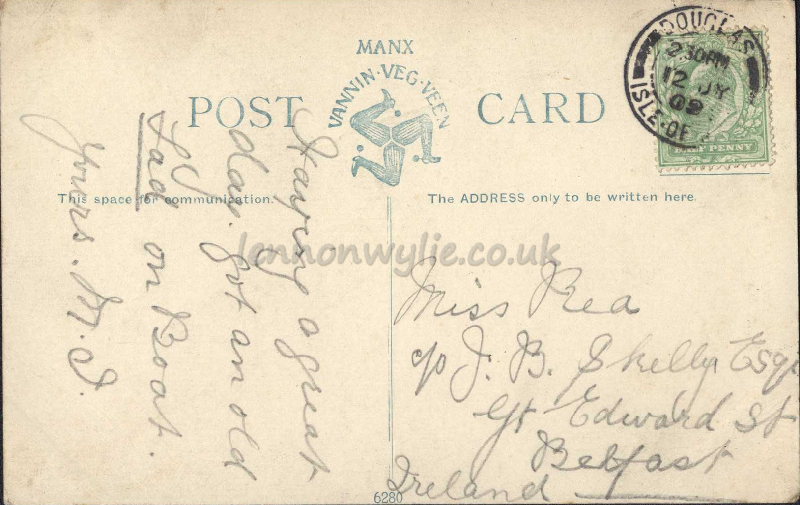 MANX
VANNIN·VEG·VEEN
POST CARD
DOUGLAS
2 30PM
12 JY
09
ISLE·OF
HALF PENNY
This space for communication.
The ADDRESS only to be written here.
Having a great
day. Got an old
Lad on Boat.
Yours. M. I.
lennonwylie.co.uk
Miss Rea
c/o J. B. Skelly Esqr
Gt Edward St
Belfast
Ireland
6280